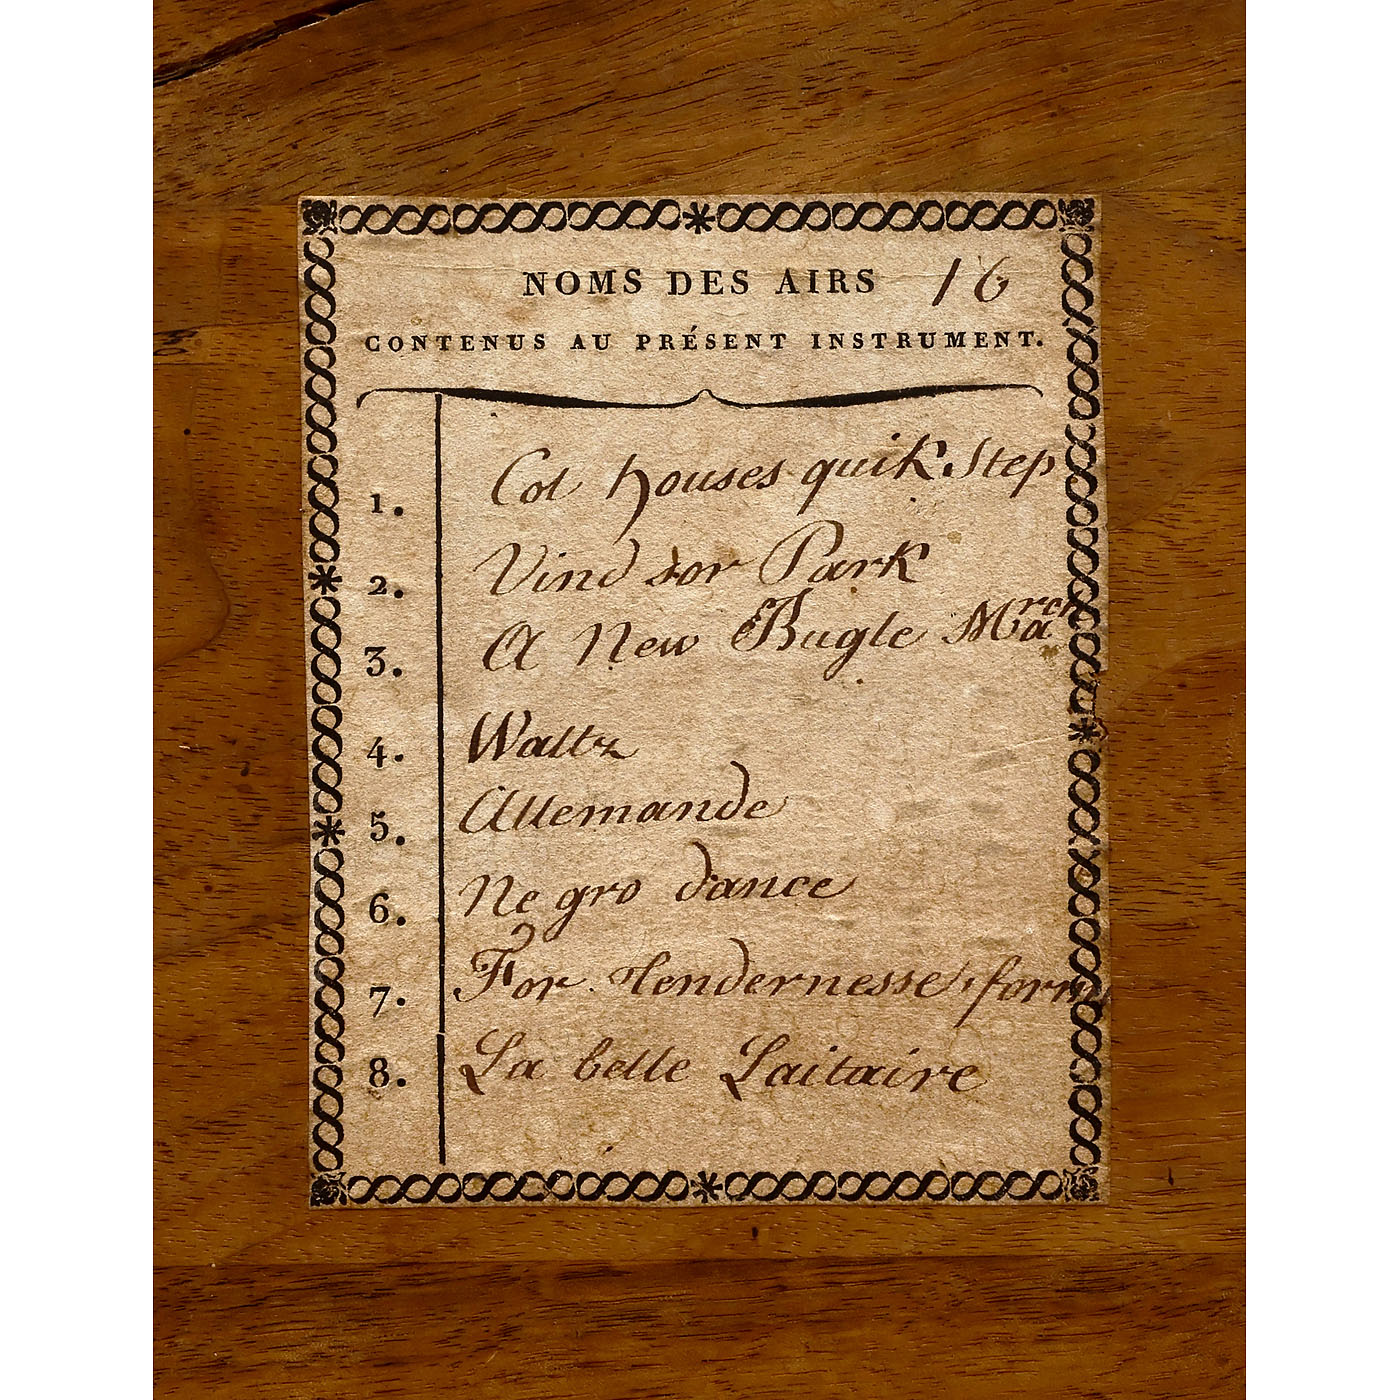 NOMS DES AIRS 16
CONTENUS AU PRÉSENT INSTRUMENT.
1. Col houses quik Step
2. Vind sor Park
3. A New Bugle March
4. Waltz
5. Allemande
6. Negro dance
7. For Tendernesse form
8. La belle Laitaire